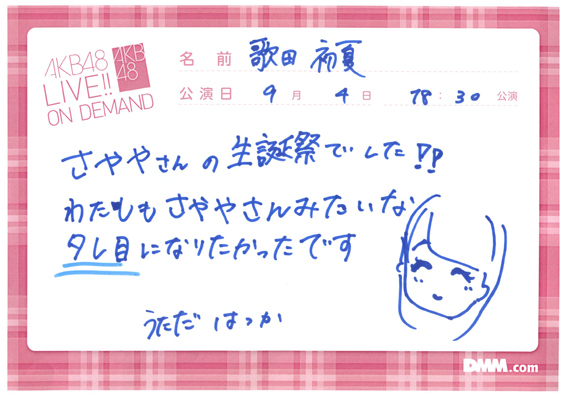 AKB48
LIVE!!
ON DEMAND
AKB
48
名前 歌田 初夏
公演日 9月 4日 18:30 公演
さややさんの生誕祭でした!!
わたしもさややさんみたいな
タレ目になりたかったです
うただ はつか
DMM.com